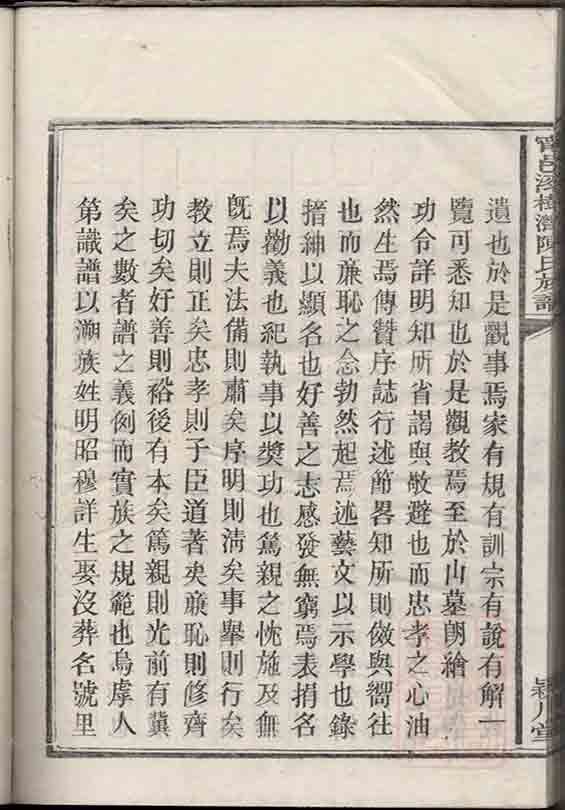 甯邑深樹灣陳氏族譜
潁川堂
遺也於是觀事焉家有規有訓宗有說有解一
覽可悉知也於是觀教焉至於山墓朗繪
功令詳明知所省謁與敬避也而忠孝之心油
然生焉傳贊序誌行述節畧知所則傚與嚮往
也而廉恥之念勃然起焉述藝文以示學也錄
搢紳以顯名也好善之志感發無窮焉表捐名
以勸義也紀執事以獎功也篤親之忱施及無
旣焉夫法備則肅矣序明則淸矣事舉則行矣
教立則正矣忠孝則子臣道著矣廉恥則修齊
功切矣好善則裕後有本矣篤親則光前有冀
矣之數者譜之義例而實族之規範也烏虖人
第識譜以溯族姓明昭穆詳生娶沒葬名號里